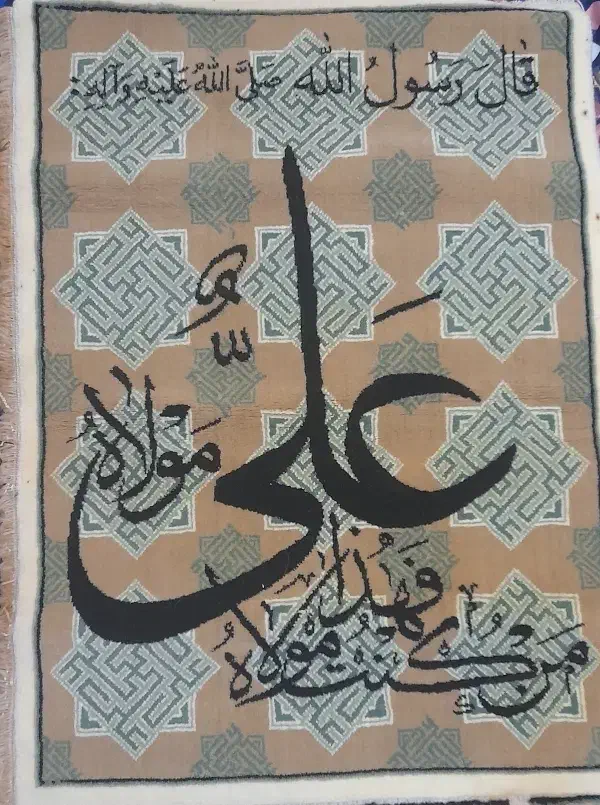 قَالَ رَسُولُ اللّٰه صَلَّى اللّٰهُ عَلَيْهِ وَآلِهِ:
مَن كُنْتُ مَوْلاهُ
فَهٰذا
عَلِىٌّ
مَوْلاهُ